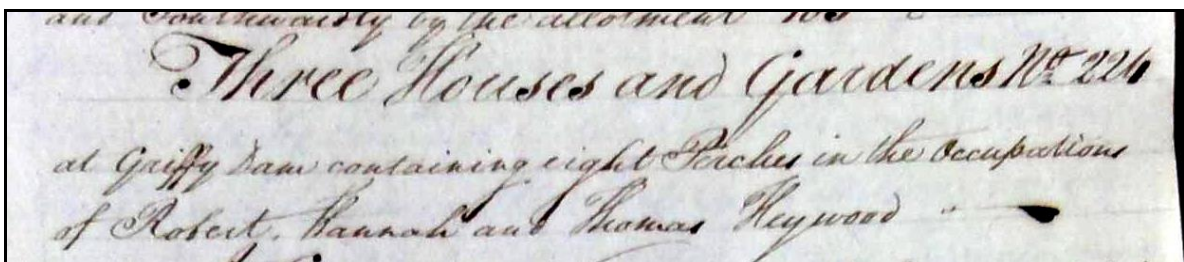 and Southwardly by the allotment 103
Three Houses and Gardens No. 224
at Griffy Dam containing eight Perches in the Occupations
of Robert, Hannah and Thomas Heywood